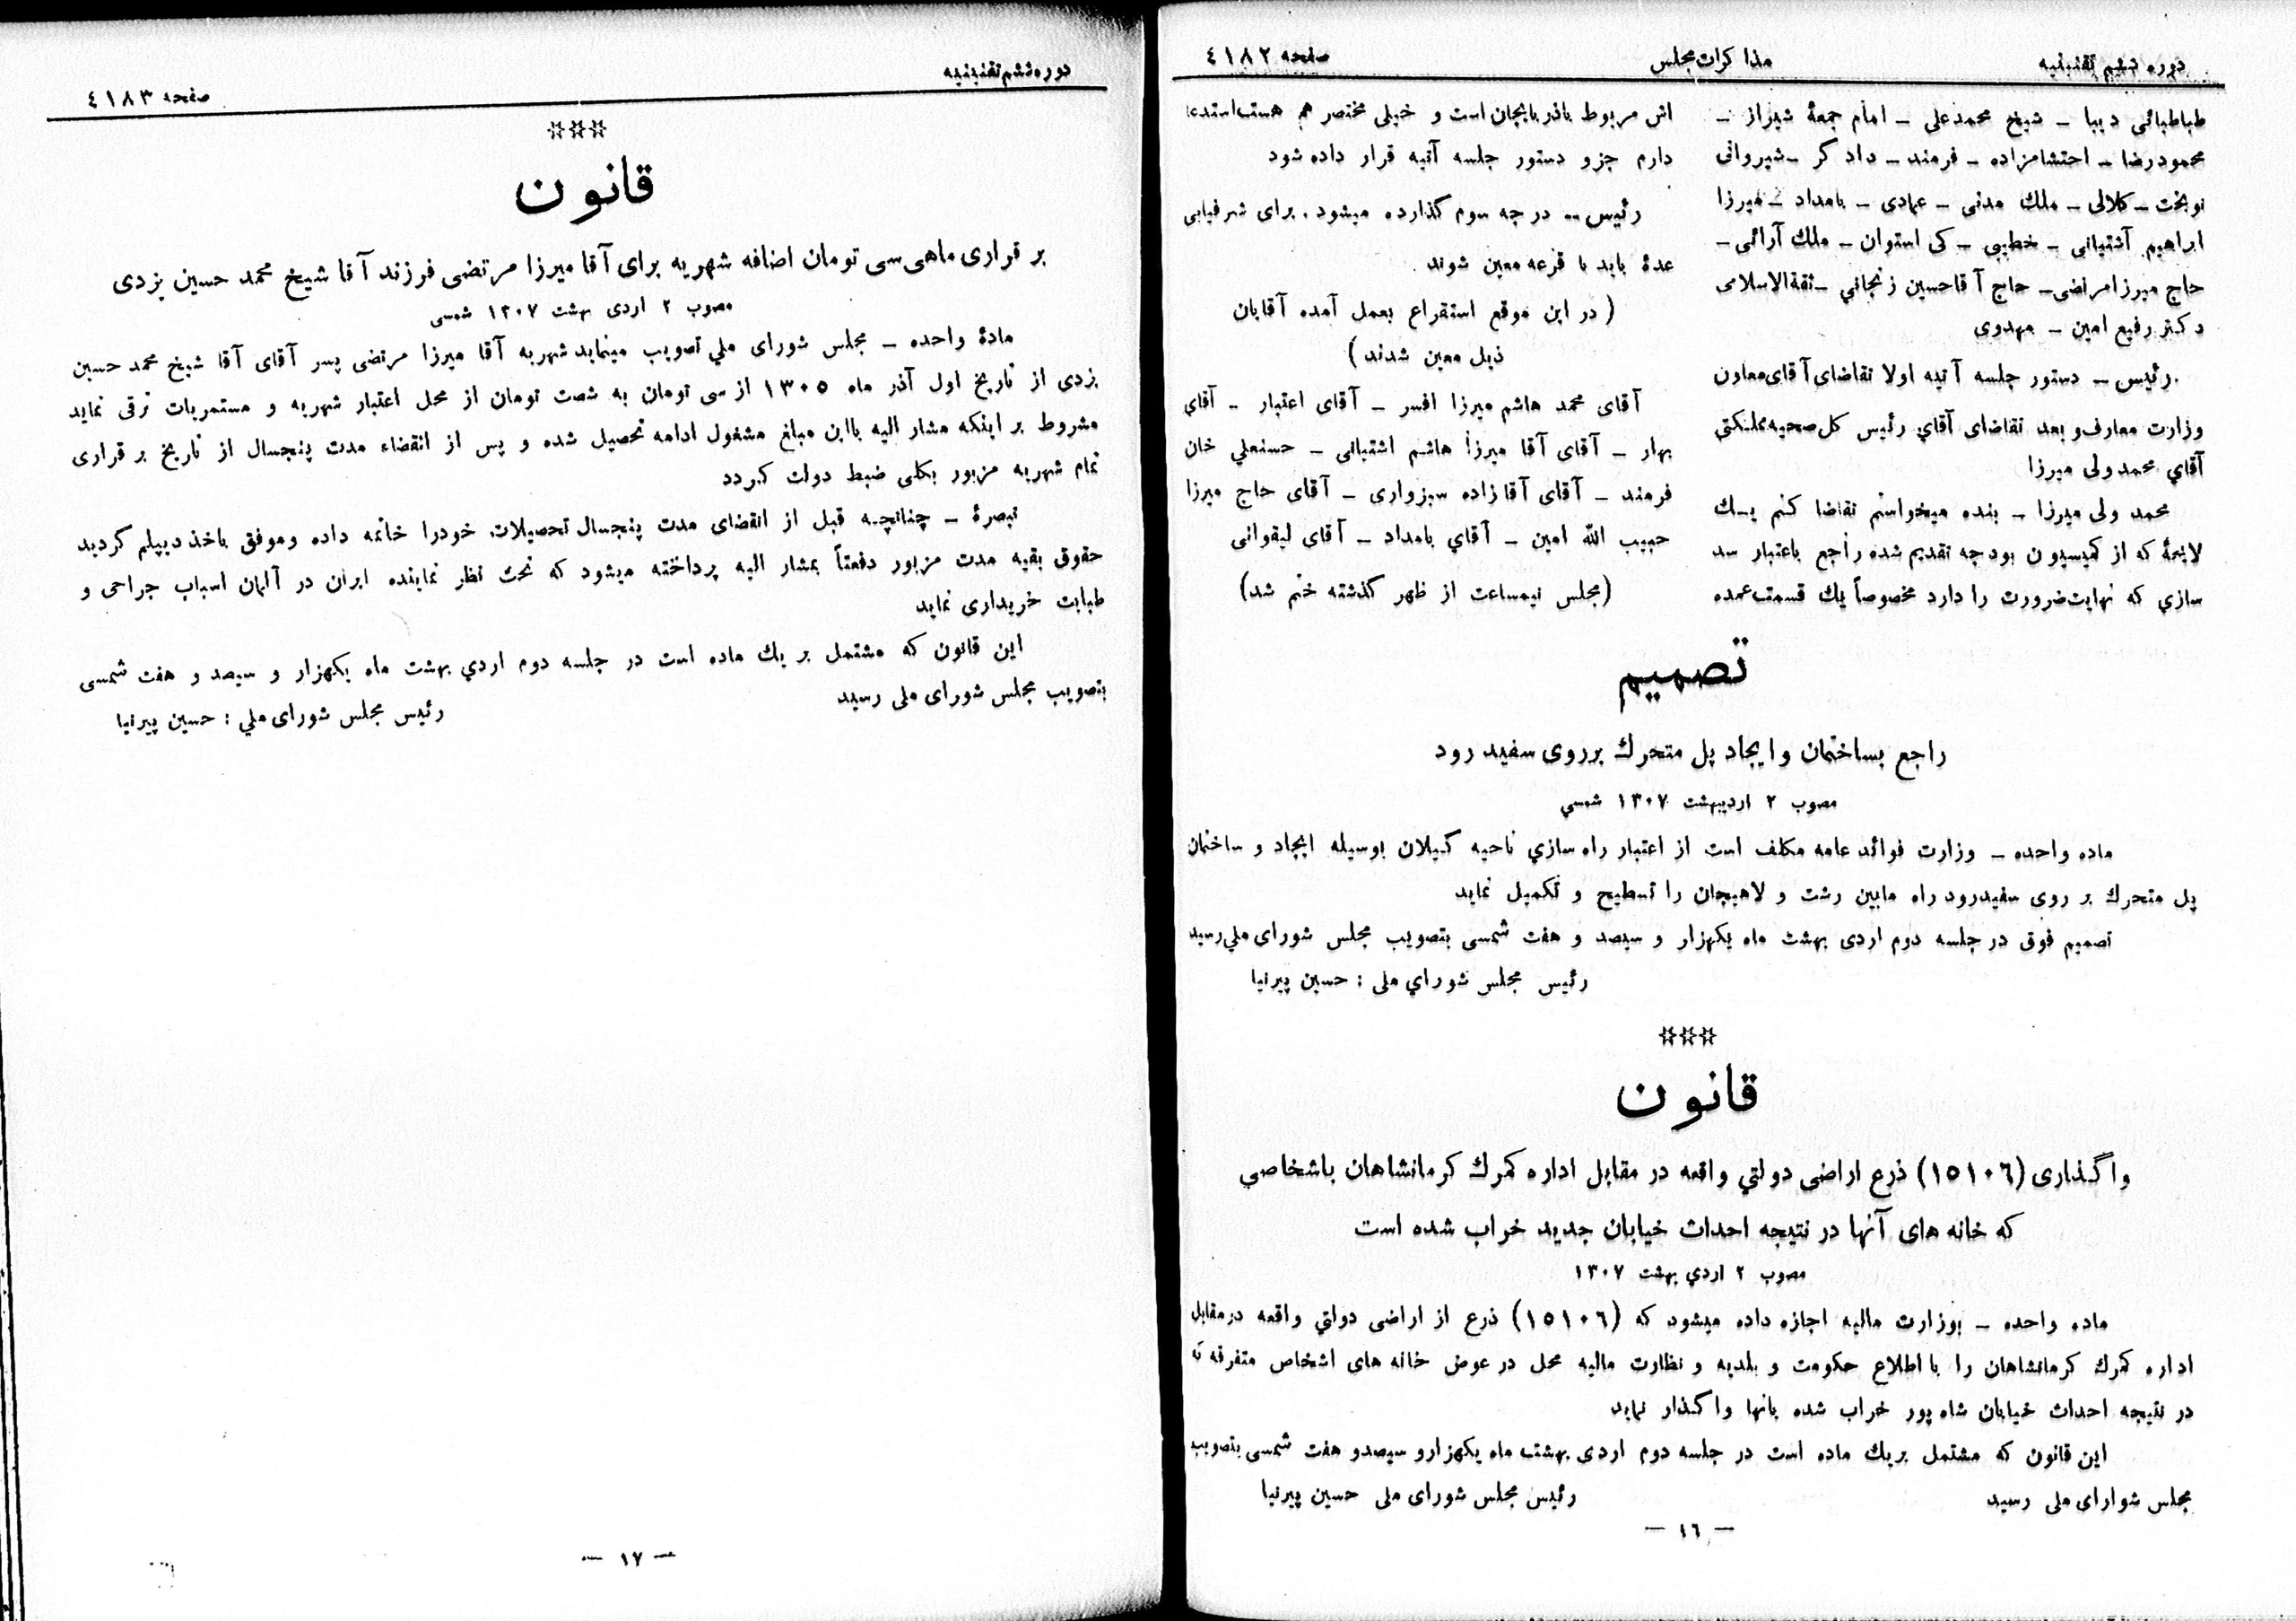 دوره ششم تقنینیه
مذاکرات مجلس
صفحه ٤١٨٢
طباطبائی دیبا ــ شیخ محمدعلی ــ امام جمعهٔ شیراز ــ
محمودرضا ــ احتشامزاده ــ فرمند ــ دادگر ــ شیروانی
نوبخت ــ کلالی ــ ملك مدنی ــ عمادی ــ بامداد ــ میرزا
ابراهیم آشتیانی ــ خطیبی ــ کی استوان ــ ملك آرائی ــ
حاج میرزا مرتضی ــ حاج آقا حسین زنجاني ــ ثقةالاسلامی
دکتر رفیع امین ــ مهدوی
رئیس ــ دستور جلسه آتیه اولا تقاضای آقای معاون
وزارت معارف و بعد تقاضای آقاي رئیس کل صحیه مملکتي
آقاي محمد ولی میرزا
محمد ولی میرزا ــ بنده میخواستم تقاضا کنم یـك
لایحهٔ که از کمیسیون بودجه تقدیم شده راجع باعتبار سد
سازي که نهایت ضرورت را دارد مخصوصاً یك قسمت عمده
اش مربوط بآذربایجان است و خیلی مختصر هم هست استدعا
دارم جزو دستور جلسه آتیه قرار داده شود
رئیس ــ درجه سوم گذارده میشود . برای شرفیابی
عدهٔ باید با قرعه معین شوند
( در این موقع استقراع بعمل آمده آقایان
ذیل معین شدند )
آقای محمد هاشم میرزا افسر ــ آقای اعتبار ــ آقاي
بهار ــ آقای آقا میرزا هاشم اشتیانی ــ حسنعلي خان
فرمند ــ آقای آقا زاده سبزواری ــ آقای حاج میرزا
حبیب الله امین ــ آقاي بامداد ــ آقای لیقوانی
(مجلس نیمساعت از ظهر گذشته ختم شد)
تصمیم
راجع بساختمان و ایجاد پل متحرك برروی سفید رود
مصوب ٢ اردیبهشت ١٣٠٧ شمسي
ماده واحده ــ وزارت فوائد عامه مکلف است از اعتبار راه سازي ناحیه گیلان بوسیله ایجاد و ساختمان
پل متحرك بر روی سفیدرود راه مابین رشت و لاهیجان را تسطیح و تکمیل نماید
تصمیم فوق در جلسه دوم اردی بهشت ماه یکهزار و سیصد و هفت شمسی بتصویب مجلس شورای ملي رسید
رئیس مجلس شوراي ملی : حسین پیرنیا
***
قانون
واگذاری (١٥١٠٦) ذرع اراضی دولتي واقعه در مقابل اداره گمرك کرمانشاهان باشخاصي
که خانه های آنها در نتیجه احداث خیابان جدید خراب شده است
مصوب ٢ اردي بهشت ١٣٠٧
ماده واحده ــ بوزارت مالیه اجازه داده میشود که (١٥١٠٦) ذرع از اراضی دولتي واقعه در مقابل
اداره گمرك کرمانشاهان را با اطلاع حکومت و بلدیه و نظارت مالیه محل در عوض خانه های اشخاص متفرقه که
در نتیجه احداث خیابان شاه پور خراب شده بانها واگذار نماید
این قانون که مشتمل بریك ماده است در جلسه دوم اردی بهشت ماه یکهزارو سیصدو هفت شمسی بتصویب
مجلس شوارای ملی رسید
رئیس مجلس شورای ملی حسین پیرنیا
— ١٦ —
دوره ششم تقنینیه
صفحه ٤١٨٣
***
قانون
بر قراری ماهی سی تومان اضافه شهریه برای آقا میرزا مرتضی فرزند آقا شیخ محمد حسین یزدی
مصوب ٢ اردی بهشت ١٣٠٧ شمسی
مادهٔ واحده ــ مجلس شورای ملي تصویب مینماید شهریه آقا میرزا مرتضی پسر آقای آقا شیخ محمد حسین
یزدی از تاریخ اول آذر ماه ١٣٠٥ از سی تومان به شصت تومان از محل اعتبار شهریه و مستمریات ترقی نماید
مشروط بر اینکه مشار الیه بااین مبلغ مشغول ادامه تحصیل شده و پس از انقضاء مدت پنجسال از تاریخ برقراری
تمام شهریه مزبور بکلی ضبط دولت گردد
تبصرهٔ ــ چنانچـه قبل از انقضای مدت پنجسال تحصیلات خودرا خاتمه داده وموفق باخذ دیپلم گردید
حقوق بقیه مدت مزبور دفعتاً بمشار الیه پرداخته میشود که تحت نظر نماینده ایران در آلمان اسباب جراحی و
طبابت خریداری نماید
این قانون که مشتمل بر یك ماده است در جلسه دوم اردي بهشت ماه یکهزار و سیصد و هفت شمسی
بتصویب مجلس شورای ملی رسید
رئیس مجلس شورای ملي : حسین پیرنیا
— ١٧ —